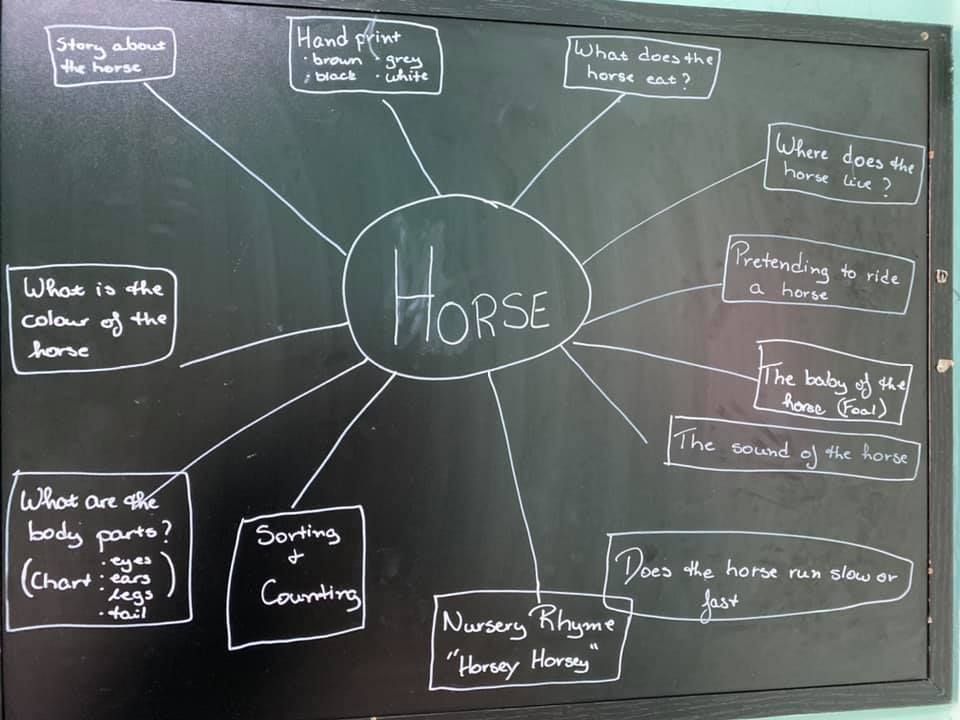 Story about
the horse
Hand print
· brown · grey
· black · white
What does the
horse eat?
Where does the
horse live?
Pretending to ride
a horse
The baby of the
horse (Foal)
The sound of the horse
Does the horse run slow or
fast
Nursery Rhyme
"Horsey Horsey"
Sorting
+
Counting
What are the
body parts?
(Chart · eyes
· ears
· legs
· tail)
What is the
colour of the
horse
HORSE